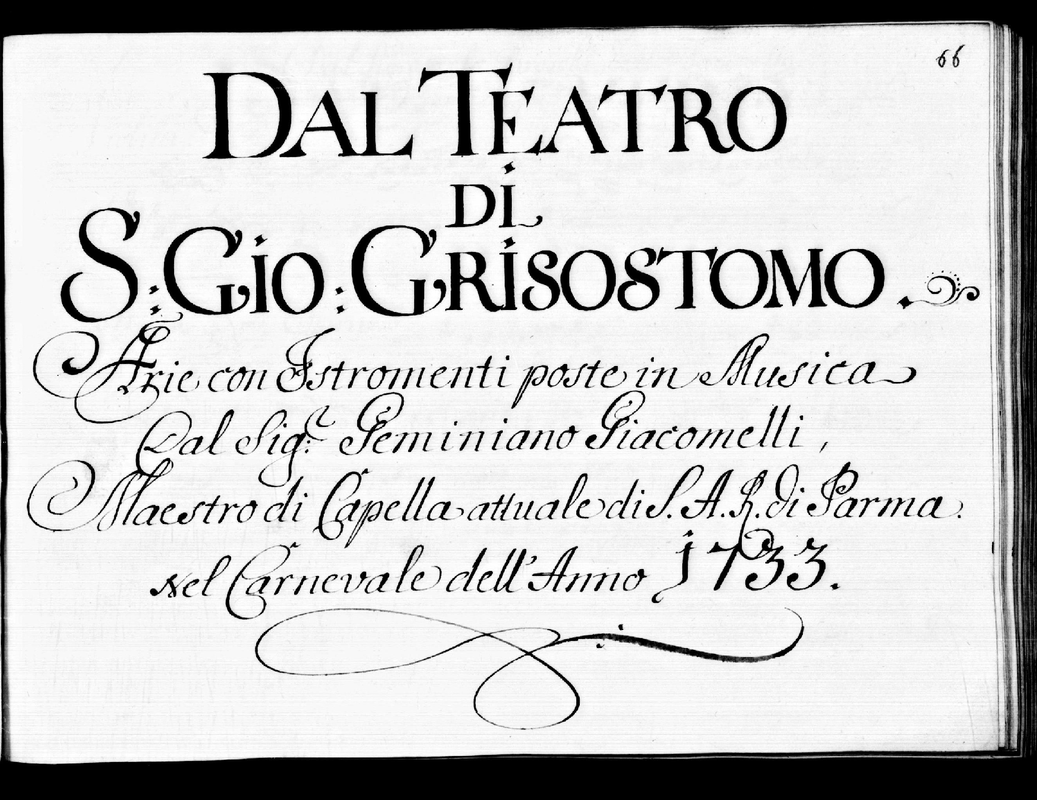 66
DAL TEATRO
DI
S: GIO: GRISOSTOMO.
Arie con Istromenti poste in Musica
Dal Sig.r Geminiano Giacomelli,
Maestro di Capella attuale di S. A. R. di Parma.
Nel Carnevale dell'Anno 1733.